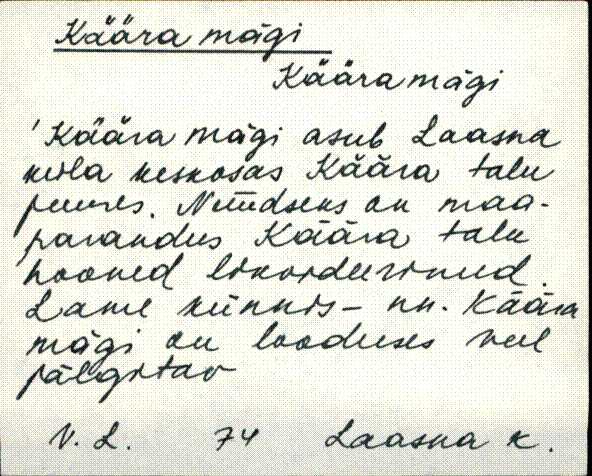 Käära mägi
Käära mägi
'Käära mägi asub Laasna
küla keskosas Käära talu
juures. Nüüdseks on maa-
parandus Käära talu
hooned likvideerinud.
Lame künnis - nn. Käära
mägi on looduses veel
jälgitav
V. L. 74 Laasna k.